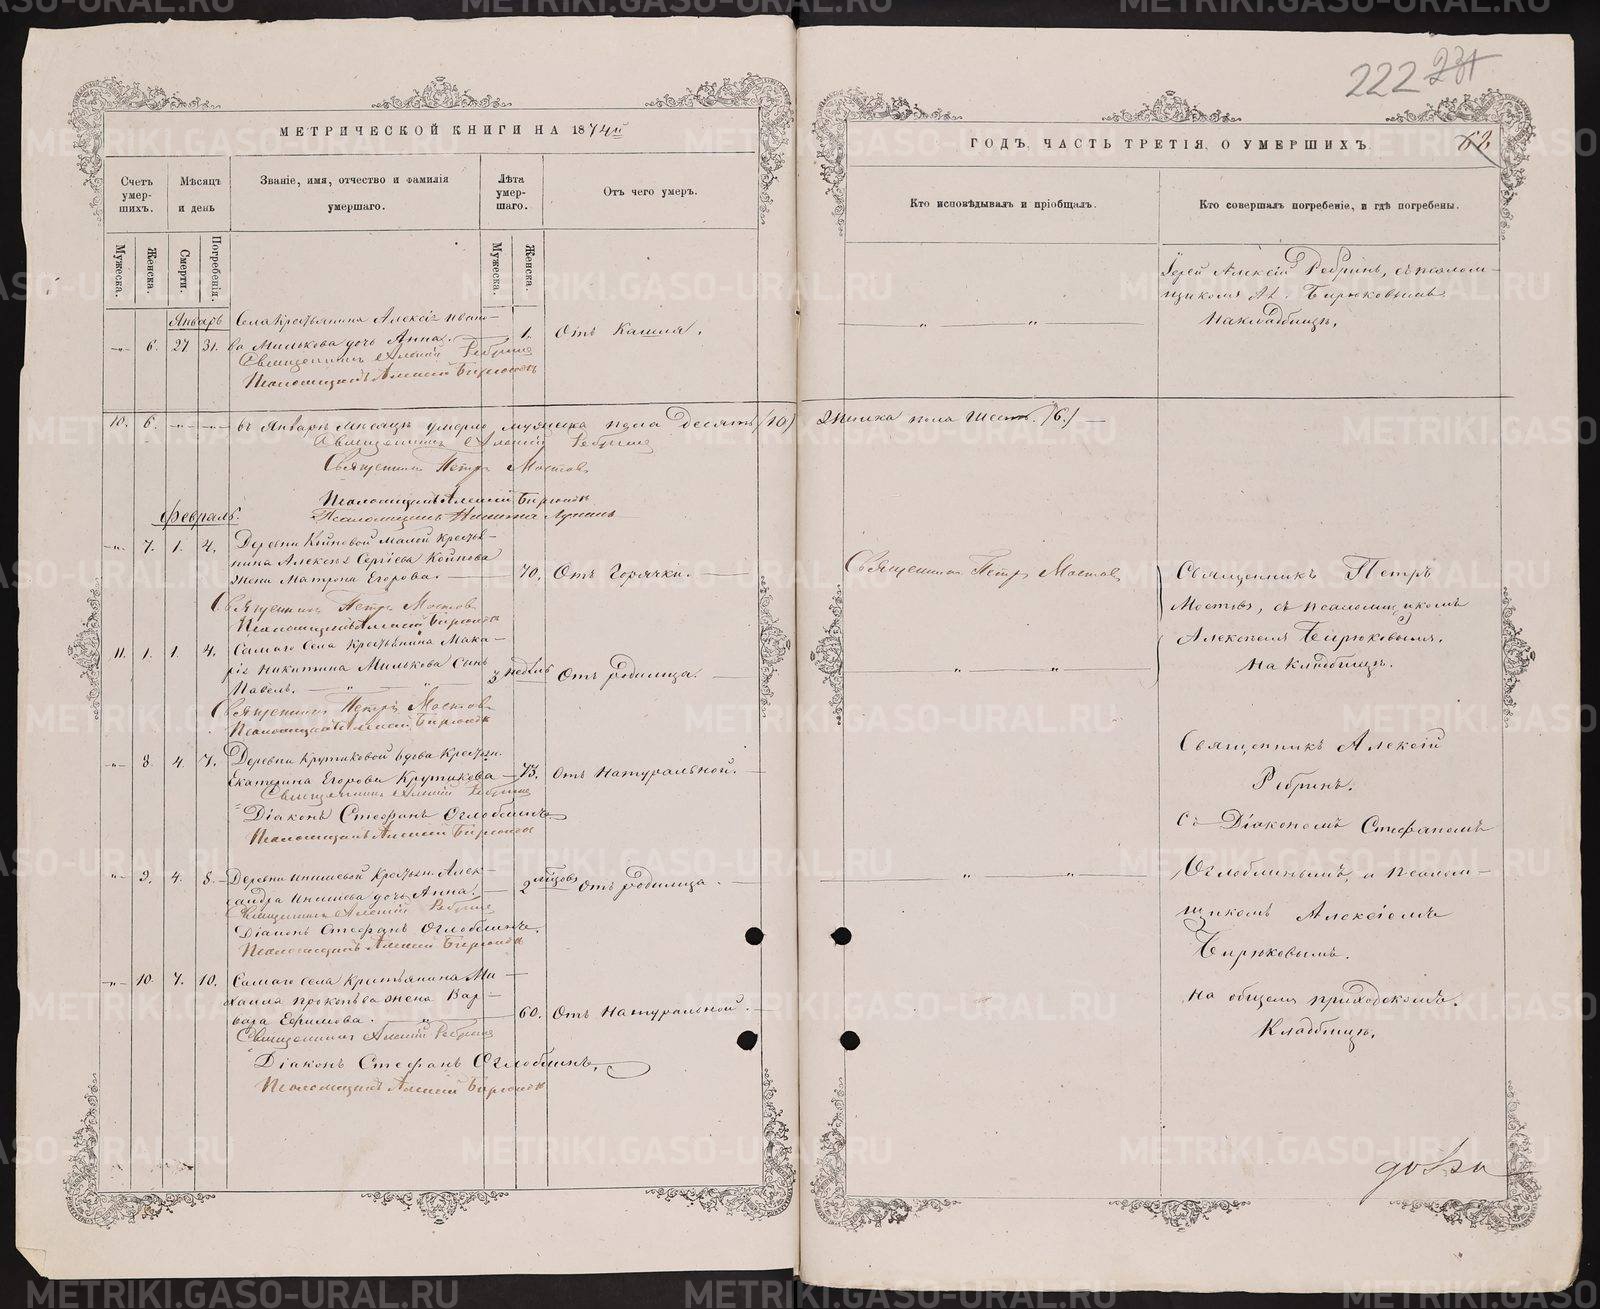 222 231
МЕТРИЧЕСКОЙ КНИГИ НА 1874й
ГОДЪ, ЧАСТЬ ТРЕТІЯ, О УМЕРШИХЪ
62
Счетъ умер-шихъ.
Мѣсяцъ и день
Званіе, имя, отчество и фамилія умершаго.
Лѣта умер-шаго.
Отъ чего умеръ.
Кто исповѣдывалъ и пріобщалъ.
Кто совершалъ погребеніе, и гдѣ погребены.
Мужеска.
Женска.
Смерти.
Погребенія.
Мужеска.
Женска.
Январь
Села Крестьянина Алексія Ивано-
6. 27 31. ва Милькова дочь Анна. 1. Отъ Кашля.
Священникъ Алексій Ребринъ
Псаломщикъ Алексій Бирюковъ
Іерей Алексій Ребринъ, съ псалом-
щикомъ Ал. Бирюковымъ
На кладбищѣ.
10. 6. въ Январѣ мѣсяцѣ умерло мужеска пола десять (10) Женска пола шесть (6.)
Священникъ Алексій Ребринъ
Священникъ Петръ Мостовъ
Псаломщикъ Алексій Бирюковъ
Псаломщикъ Никита
Февраль.
7. 1. 4. Деревни Койновой Малой крестья-
нина Алексѣя Сергіева Койнова
жена Матрона Егорова. 70. Отъ Горячки.
Священникъ Петръ Мостовъ
Псаломщикъ Алексій Бирюковъ
Священникъ Петръ Мостовъ
Священникъ Петръ
Мостовъ, съ псаломщикомъ
Алексѣемъ Бирюковымъ.
На кладбищѣ.
11. 1. 1. 4. Самаго Села Крестьянина Мака-
рія Никитина Милькова сынъ
Павелъ. 3 недѣль Отъ родимца.
Священникъ Петръ Мостовъ
Псаломщикъ Алексій Бирюковъ
8. 4. 7. Деревни Крутиковой вдова Крестьян.
Екатерина Егорова Крутикова 73. Отъ Натуральной.
Священникъ Алексій Ребринъ
Діаконъ Стефанъ Оглоблинъ
Псаломщикъ Алексій Бирюковъ
Священникъ Алексій
Ребринъ.
съ Діакономъ Стефаномъ
Оглоблинымъ, и псалом-
щикомъ Алексіемъ
Бирюковымъ.
На общемъ приходскомъ.
Кладбищѣ.
9. 4. 8. Деревни Крестьян. Алек-
сандра дочь Анна. 2 мѣсяцовъ Отъ родимца.
Священникъ Алексій Ребринъ
Діаконъ Стефанъ Оглоблинъ.
Псаломщикъ Алексій Бирюковъ
10. 7. 10. Самаго села крестьянина Ми-
хаила Прокопьева жена Вар-
вара Ефимова. 60. Отъ Натуральной.
Священникъ Алексій Ребринъ
Діаконъ Стефанъ Оглоблинъ.
Псаломщикъ Алексій Бирюковъ
METRIKI.GASO-URAL.RU